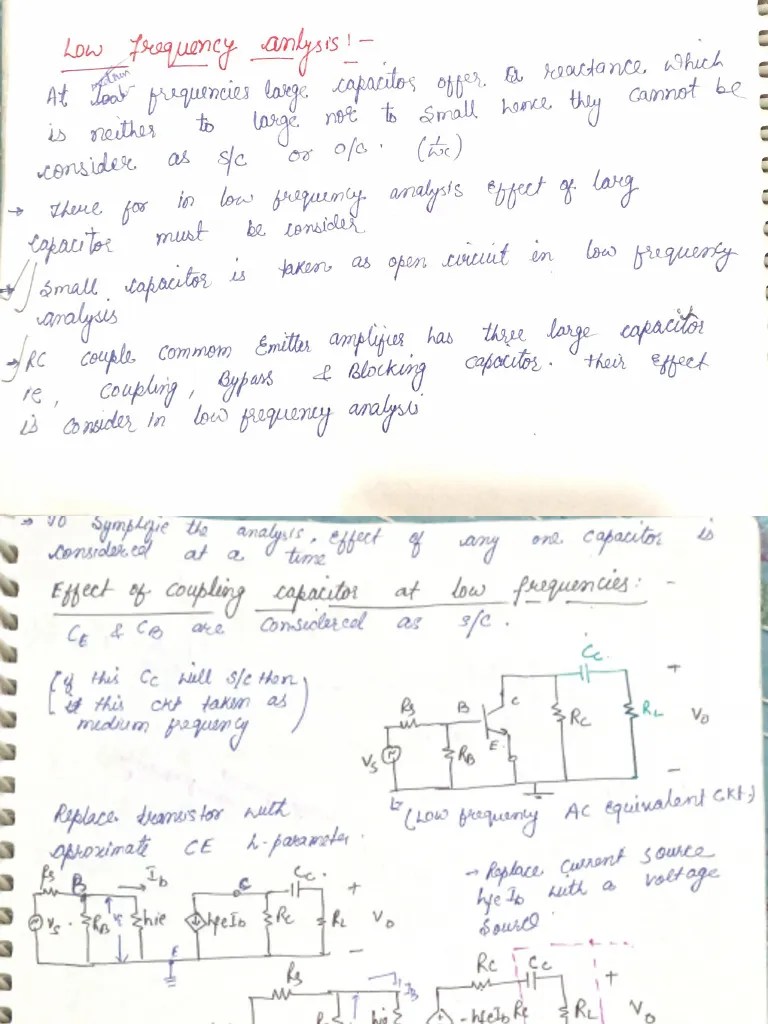 Low frequency anlysis :-
At frequencies large capacitor offer a reactance which
is neither to large nor to small hence they cannot be
consider as s/c or o/c. (1/ωc)
→ There for in low frequency analysis effect of larg
capacitor must be consider
→ Small capacitor is taken as open circuit in low frequency
analysis
→ RC couple commom Emitter amplifier has three large capacitor
ie, coupling, Bypass & Blocking capacitor. their effect
is consider in low frequency analysis
→ To Symplifie the analysis, effect of any one capacitor is
considered at a time
Effect of coupling capacitor at low frequencies: -
CE & CB are considered as s/c.
[if this Cc will s/c then
this ckt taken as
medium frequency]
Cc
+
Rs
B
C
RC
RL
Vo
Vs
RB
E
-
(Low frequency AC equivalent ckt)
Replace transistor with
aproximate CE h-parameter.
→ Replace current source
hfe Ib with a voltage
source
Rs
B
→ Ib
C
Cc
+
Vs
RB
hie
hfeIb
Rc
RL
Vo
E
-
Rs
IB
hie
Rc
Cc
+
-hfeIb Rc
RL
Vo